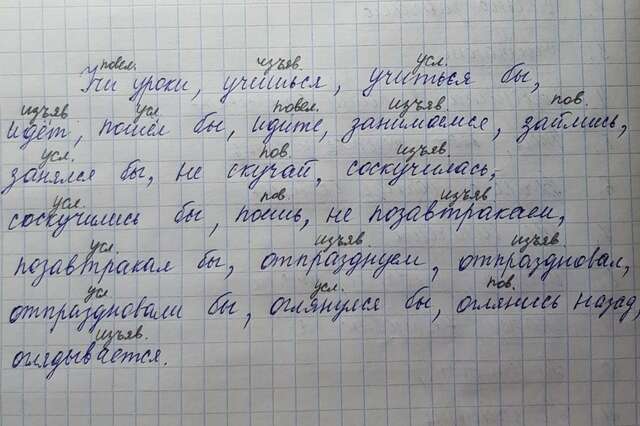 повел. изъяв. усл.
Учи уроки, учишься, учиться бы,
изъяв усл. повел. изъяв. пов.
идёт, пошёл бы, идите, занимаемся, займись,
усл. пов. изъяв.
занялся бы, не скучай, соскучилась,
усл. пов. изъяв
соскучились бы, поешь, не позавтракаем,
усл. изъяв. изъяв.
позавтракал бы, отпразднуем, отпраздновал,
усл усл. пов.
отпраздновали бы, оглянулся бы, оглянись назад,
изъяв.
оглядывается.